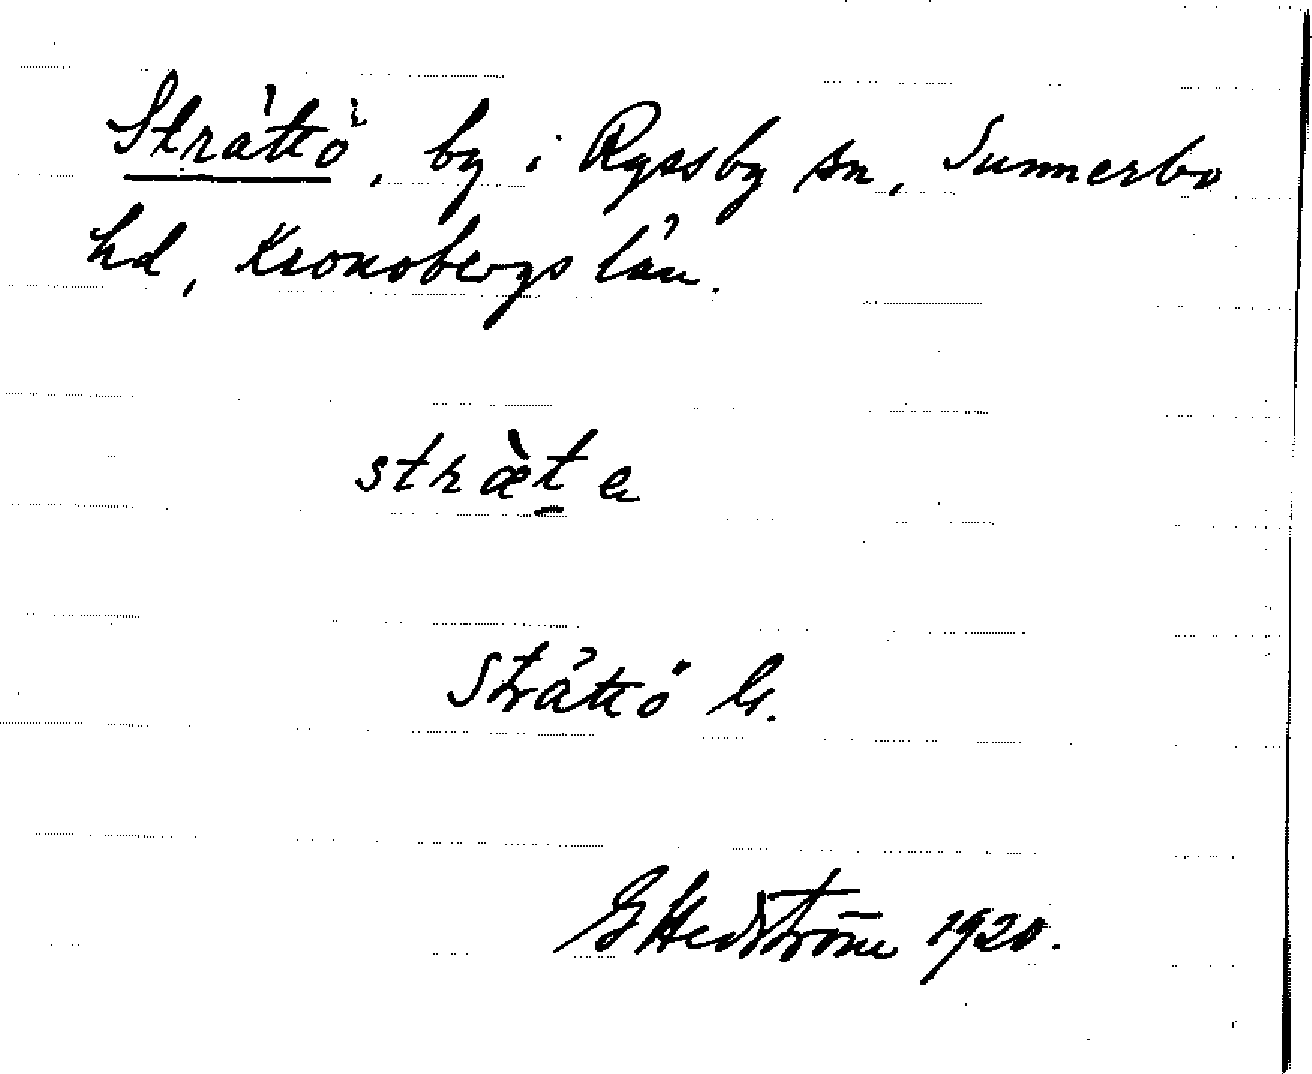 Stråttö, by i Ryssby sn, Sunnerbo
hd, Kronobergs län.
stræ̀t̲ a
Stråttö G.
G Hedström 1920.